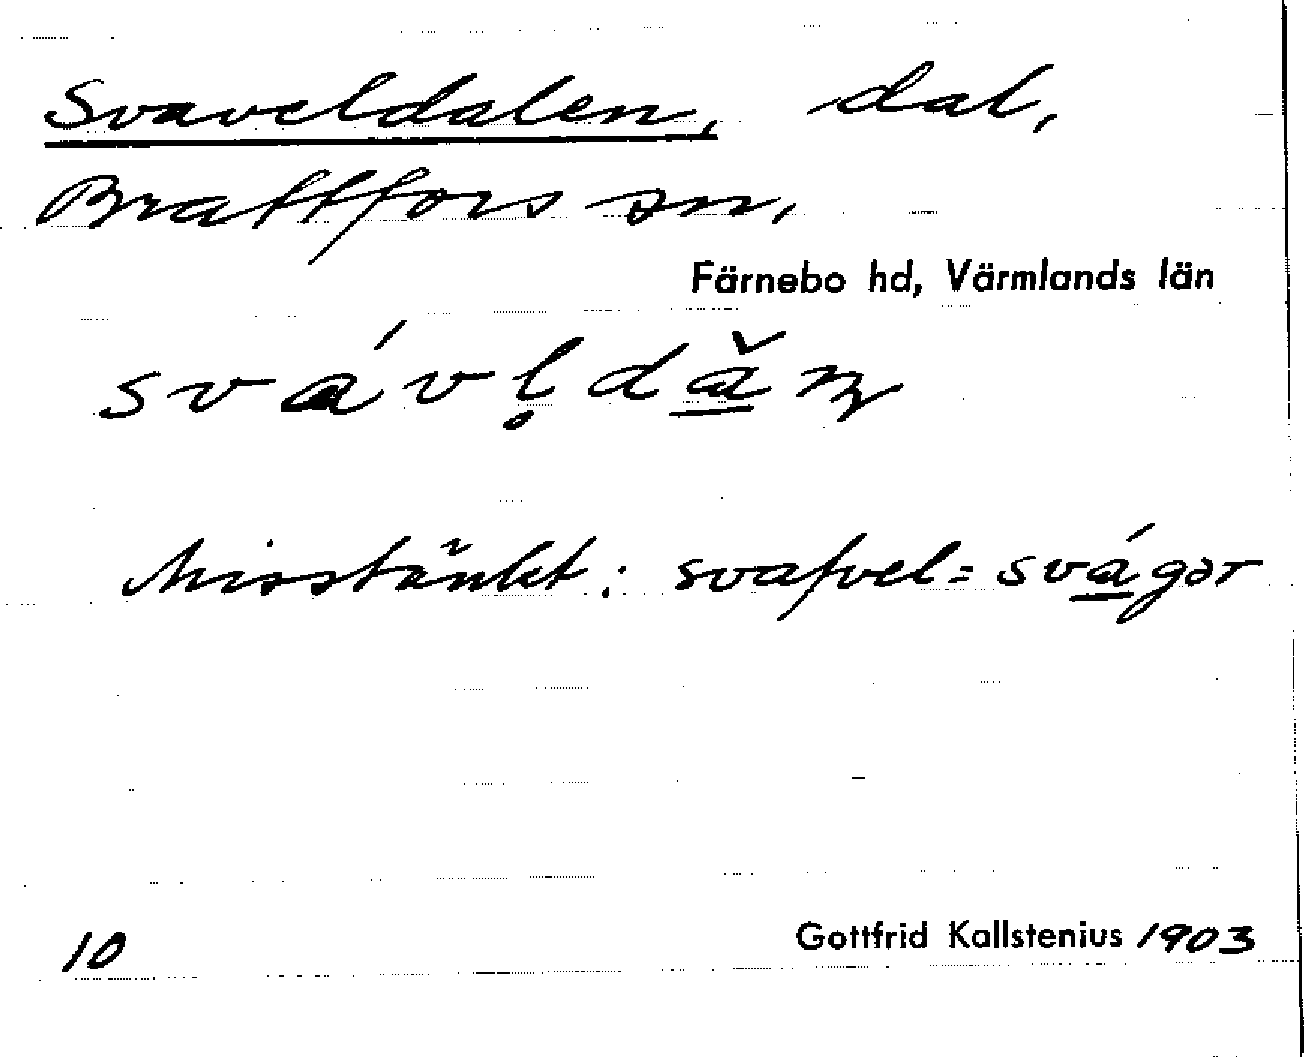 Svaveldalen, dal,
Brattfors sn,
Färnebo hd, Värmlands län
svávl̥dǎ̱n
Misstänkt: svafvel = svá̱gər
10
Gottfrid Kallstenius 1903